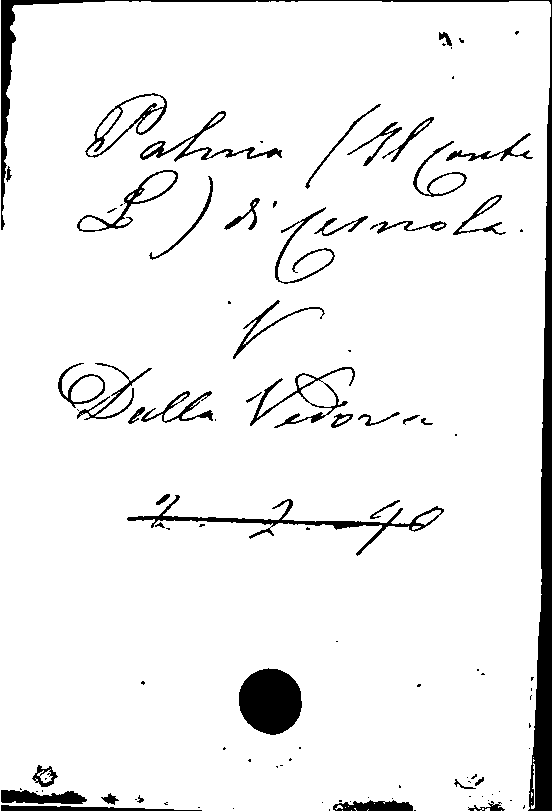 Palma (Il Conte
L) di Cesnola.
V
Dalla Vedova
2. 2. 90